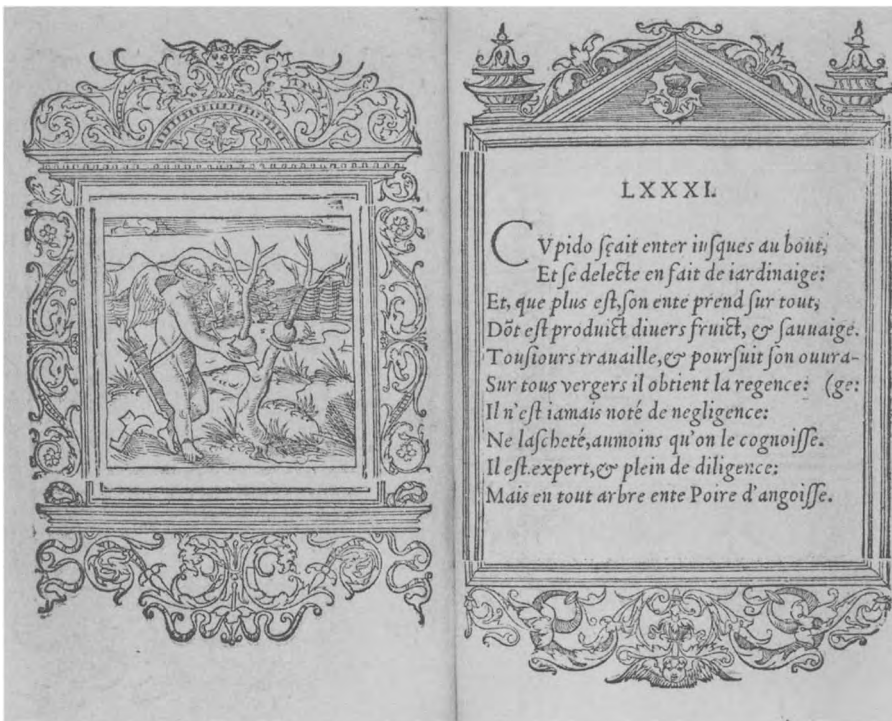 LXXXI.
CVpido ſçait enter iuſques au bout,
Et ſe delecte en fait de iardinaige:
Et, que plus eſt, ſon ente prend ſur tout,
Dõt eſt produict diuers fruict, & ſauuaige.
Touſiours trauaille, & pourſuit ſon ouura-
Sur tous vergers il obtient la regence: (ge:
Il n'eſt iamais noté de negligence:
Ne laſcheté, aumoins qu'on le cognoiſſe.
Il eſt expert, & plein de diligence:
Mais en tout arbre ente Poire d'angoiſſe.